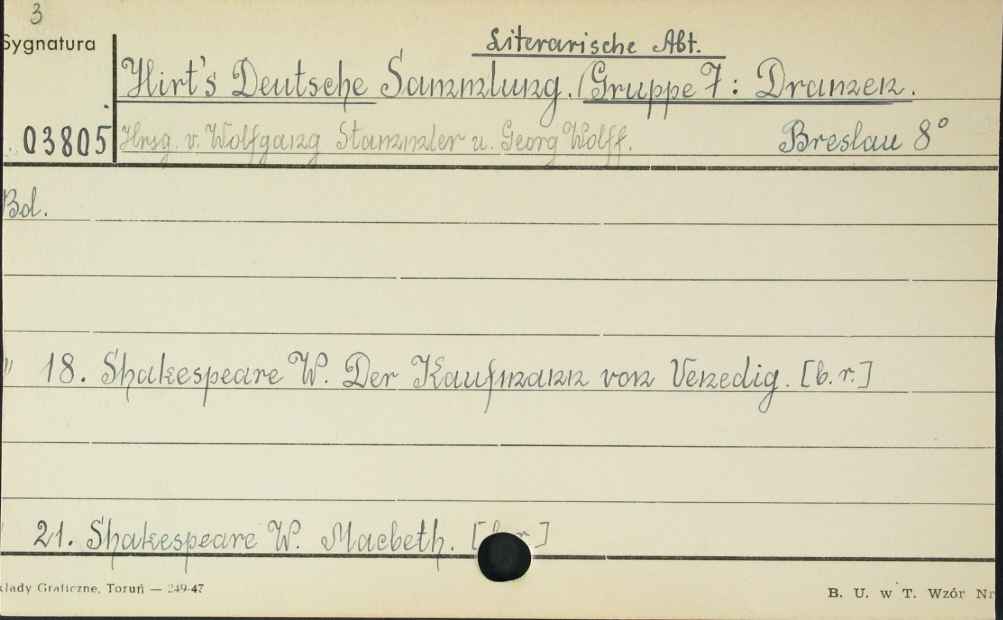 3
Sygnatura
Literarische Abt.
Hirt's Deutsche Sammlung. / Gruppe 7: Dramen.
03805
Hrsg. v. Wolfgang Stammler u. Georg Wolff. Breslau 8°
Bd.
" 18. Shakespeare W. Der Kaufmann von Venedig. [b.r.]
" 21. Shakespeare W. Macbeth. [b.r.]
kłady Graficzne, Toruń — 249-47
B. U. w T. Wzór Nr